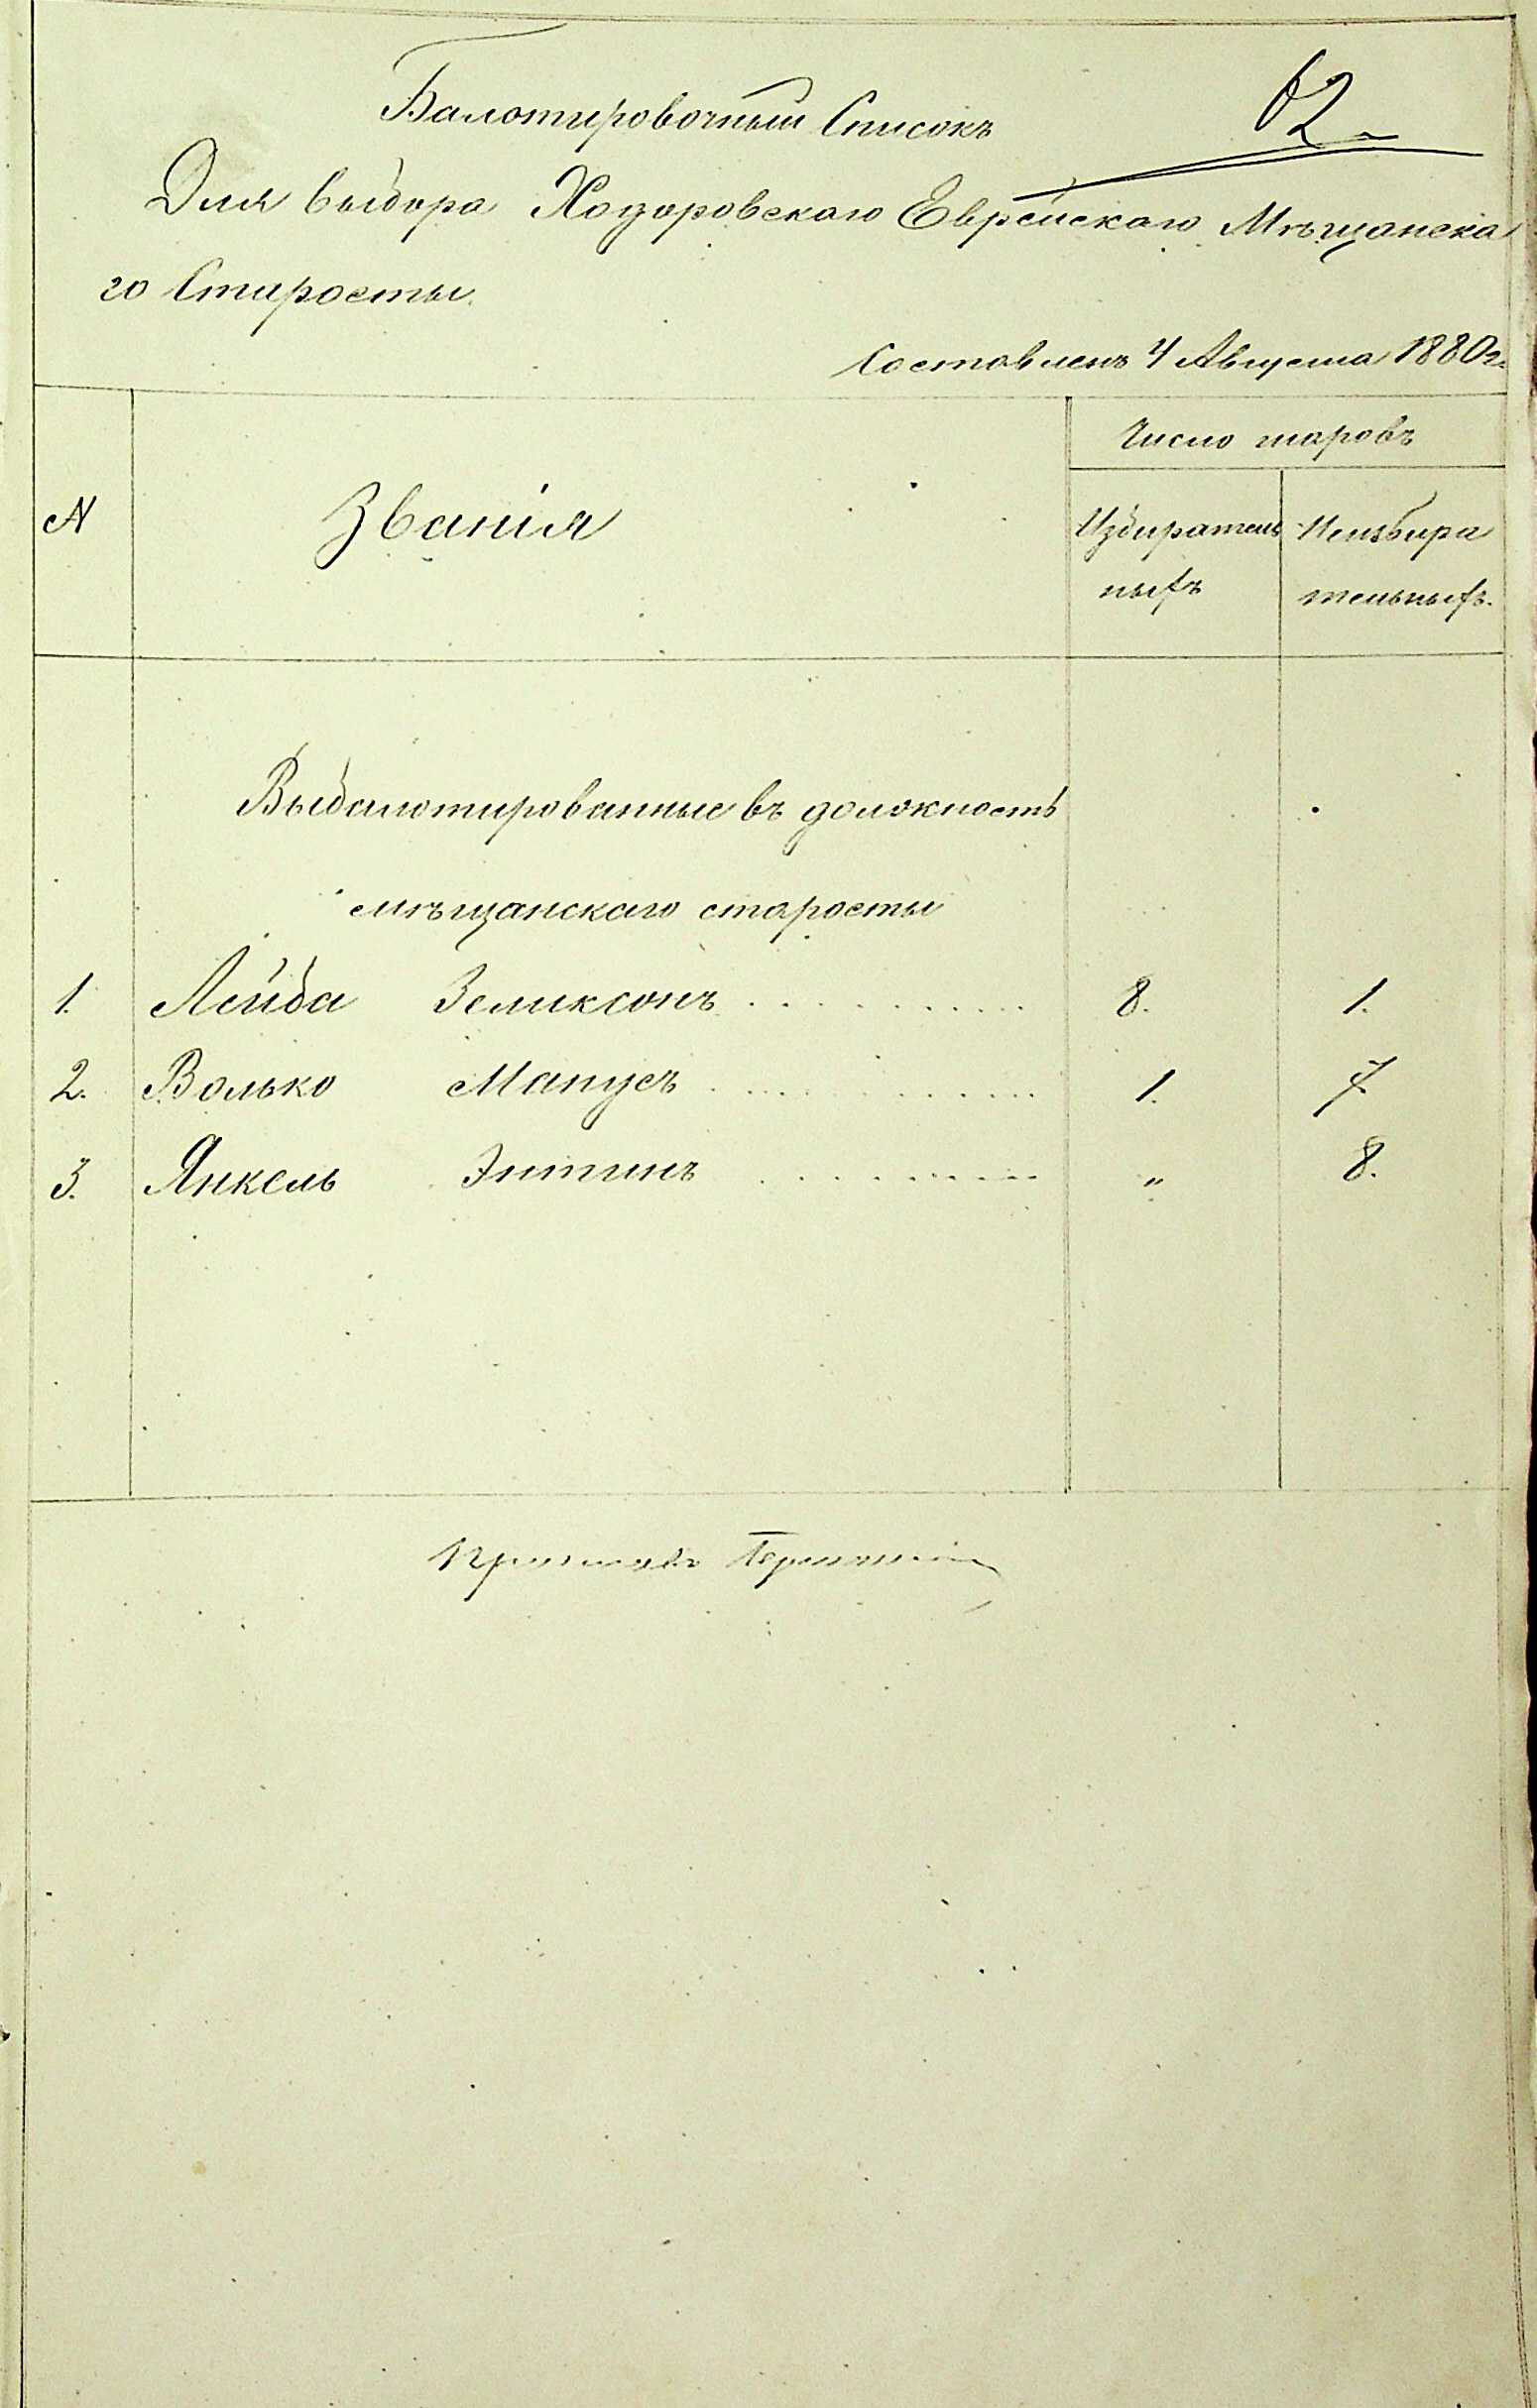 62
Балотировочный Списокъ
Для выбора Ходоровскаго Еврейскаго Мѣщанска
го Старосты.
Составленъ 4 Августа 1880 г.
N
Званія
Число шаровъ
Избиратель
ныхъ
Неизбира
тельныхъ.
Выбалотированные въ должность
мѣщанскаго старосты
1. Лейба Зеликсонъ . . . . . . . . . . 8. 1.
2. Волько Мапусъ . . . . . . . . . . 1. 7
3. Янкель Энтинъ . . . . . . . . . . " 8.
Приставъ